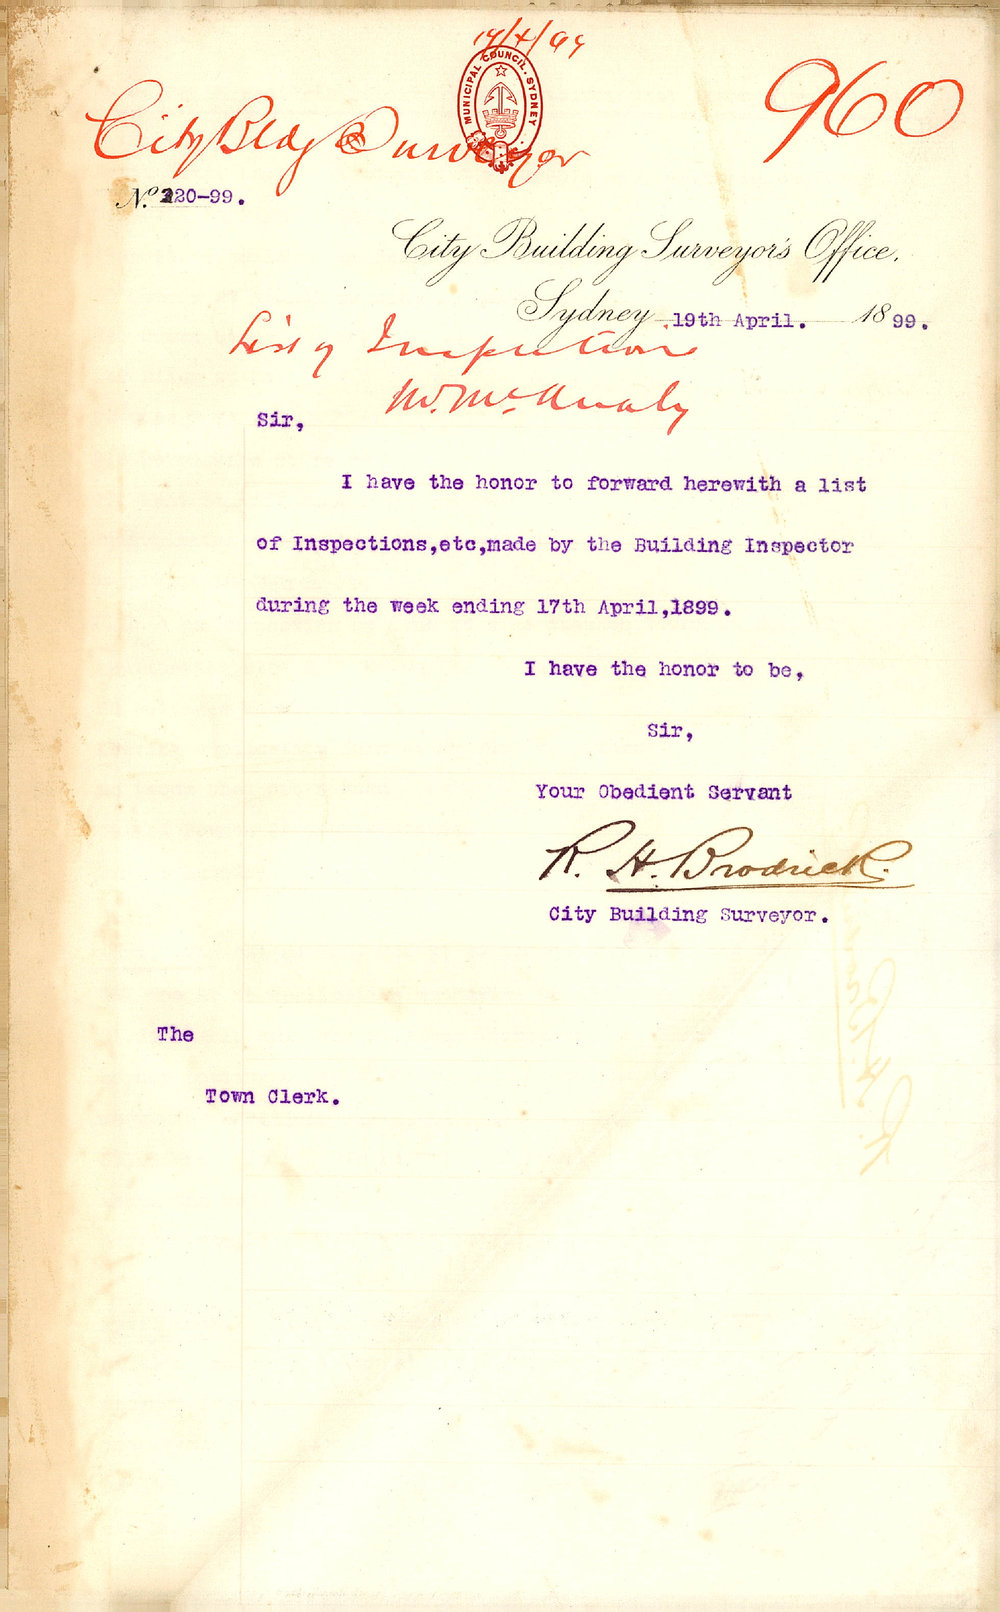 19/4/99
960
MUNICIPAL COUNCIL. SYDNEY.
City Bldg Surveyor
No. 220-99.
City Building Surveyor's Office,
Sydney 19th April. 1899.
List of Inspections
Mr. McAnaly
Sir,
I have the honor to forward herewith a list
of Inspections,etc,made by the Building Inspector
during the week ending 17th April,1899.
I have the honor to be,
Sir,
Your Obedient Servant
R. H. Brodrick.
City Building Surveyor.
The
Town Clerk.